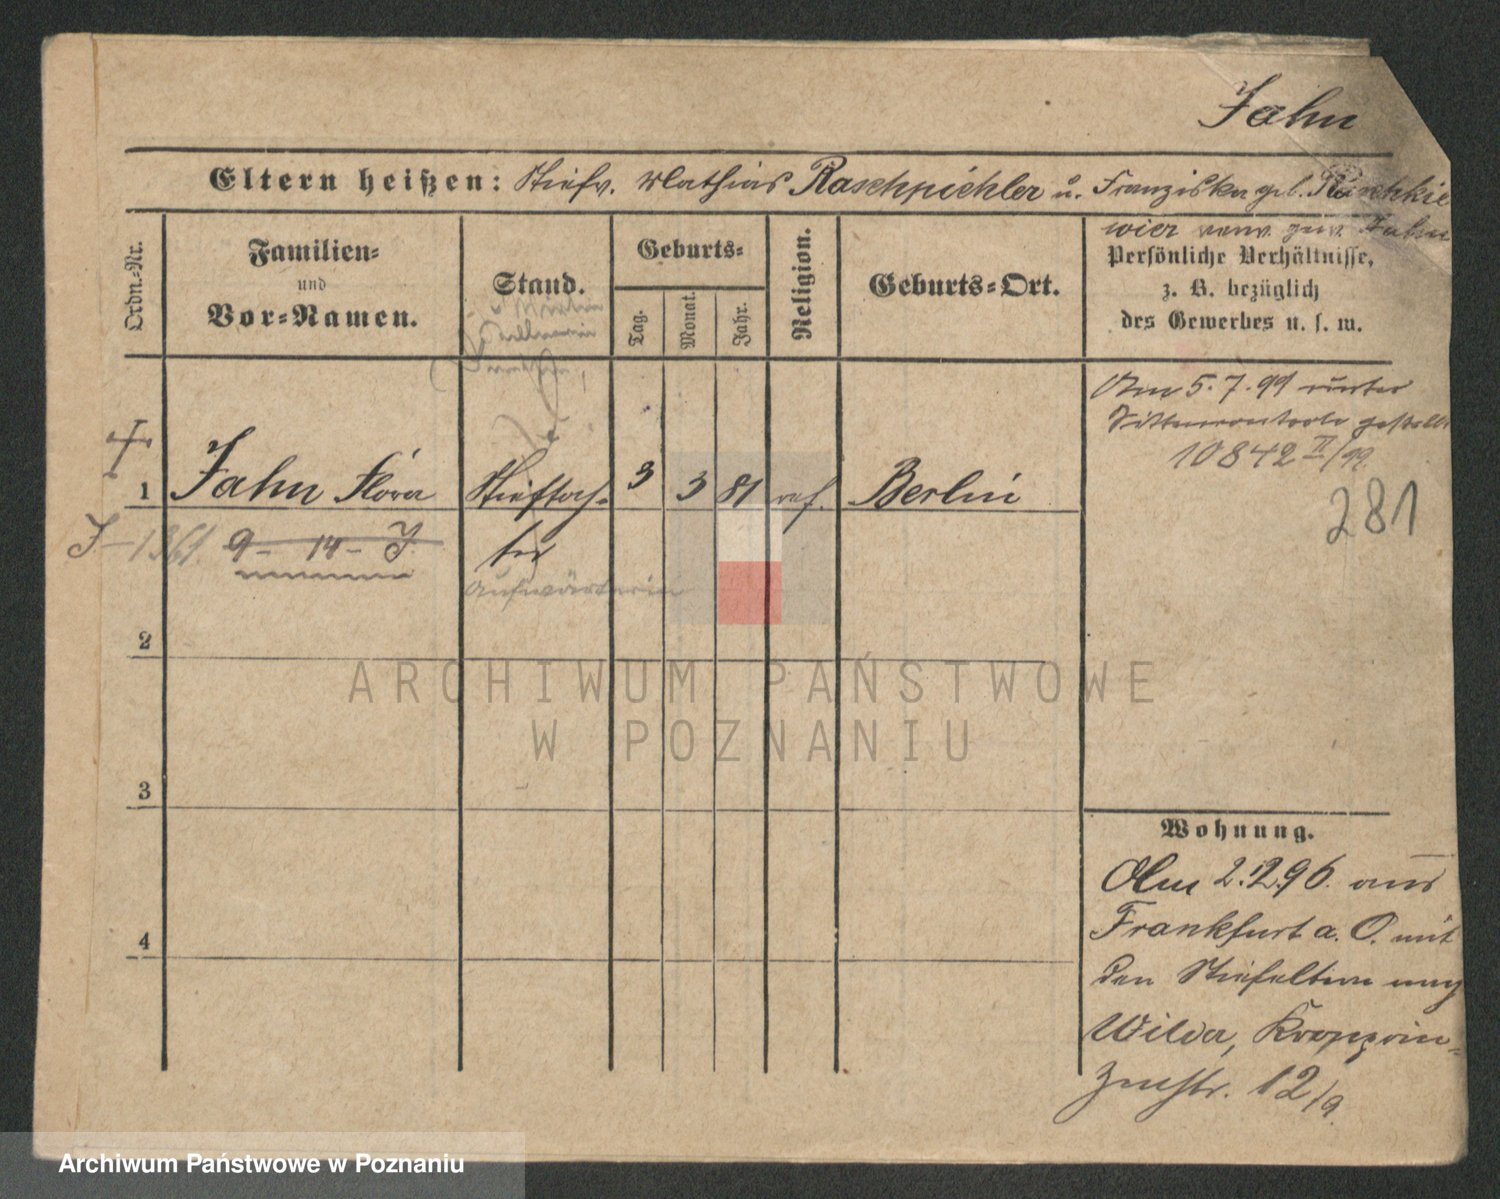 Jahn
Eltern heißen: Stiefv. Mathias Raschpichler u. Franziska geb. Raschkie
wicz verw. gew. Jahn
Ordn.-Nr.
Familien-
und
Vor-Namen.
Stand.
Geburts-
Tag.
Monat.
Jahr.
Religion.
Geburts-Ort.
Persönliche Verhältnisse,
z. B. bezüglich
des Gewerbes u. s. w.
Am 5.7.99 unter
Sittenkontrole gestellt
10842 II/99.
281
1 Jahn Flora Stieftoch- 3 3 81 ref. Berlin
J-1361. 9 - 14 - J ter
Aufwärterin
2
3
4
Wohnung.
Am 2.12.96. aus
Frankfurt a. O. mit
den Stiefeltern nach
Wilda, Kronprin-
zenstr. 12/9.
ARCHIWUM PAŃSTWOWE
W POZNANIU
Archiwum Państwowe w Poznaniu